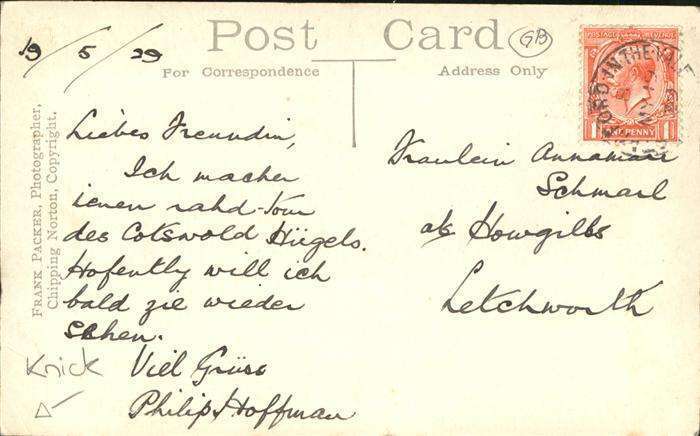 19/5/29
Post Card
GB
For Correspondence
Address Only
FRANK PACKER, Photographer,
Chipping Norton, Copyright.
POSTAGE REVENUE
ONE PENNY
IN THE VALE
Liebes Freundin,
Ich macher
ienen rahd-Tour
des Cotswold Hügels.
Hofently will ich
bald zie wieder
sehen.
Viel Grüss
Philip Hoffman
Knick
Fraulein Annamarie
Schmarl
at Howgills
Letchworth